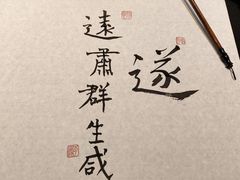 遠肅群生咸
遂